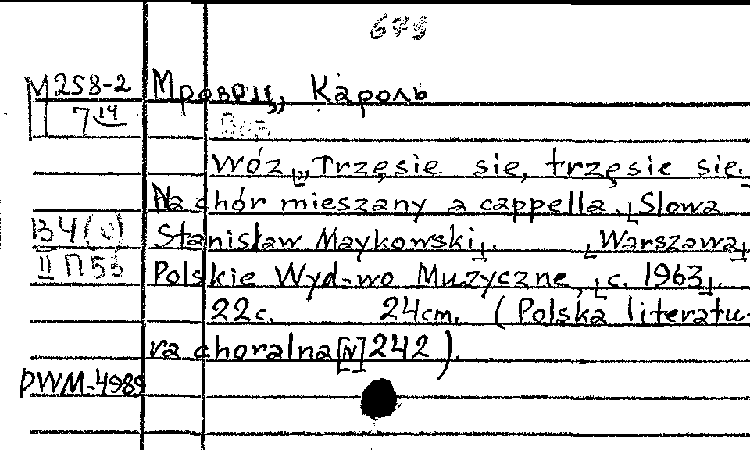 M258-2 Мровец, Кароль
7 14
Wóz „Trzęsie się, trzęsie się.
Na chór mieszany a cappella. [Slowa
В4(0) Stanisław Maykowski]. [Warszawa]
II П53 Polskie Wyd-wo Muzyczne, [c. 1963].
22с. 24cm. (Polska literatu-
ra choralna [N] 242).
PWM-4989